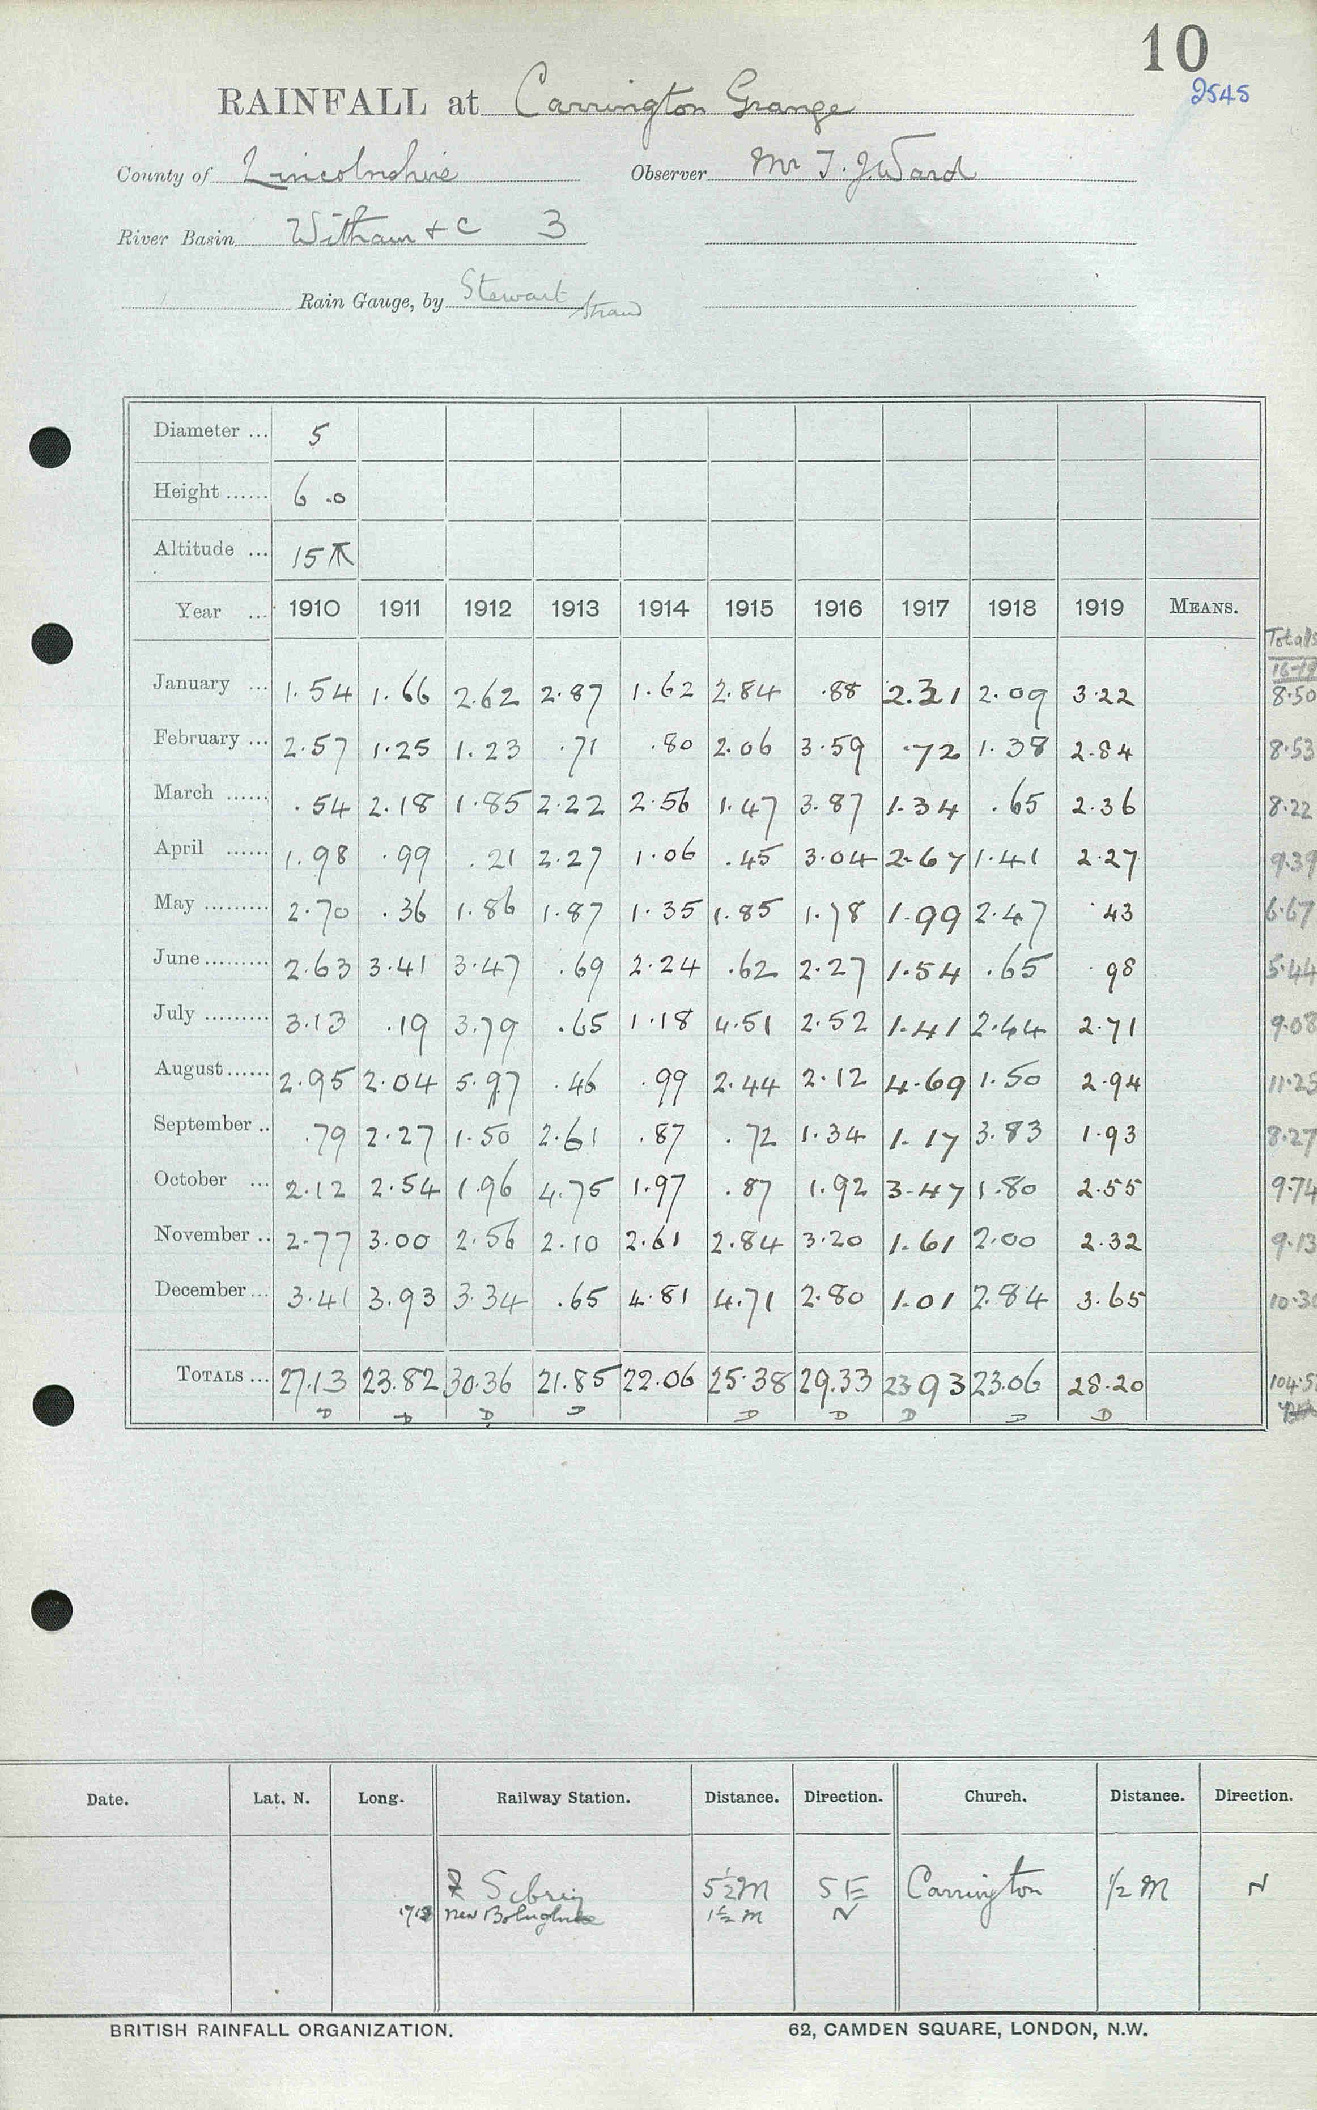 10
2545
RAINFALL at Carrington Grange
County of Lincolnshire Observer Mr T. J. Ward
River Basin Witham & C 3
Rain Gauge, by Stewart Strand
Diameter ... 5
Height ...... 6 .0
Altitude ... 15
Year ... 1910 1911 1912 1913 1914 1915 1916 1917 1918 1919 MEANS.
Totals
16-19
January ... 1.54 1.66 2.62 2.87 1.62 2.84 .88 2.31 2.09 3.22 8.50
February ... 2.57 1.25 1.23 .71 .80 2.06 3.59 .72 1.38 2.84 8.53
March ...... .54 2.18 1.85 2.22 2.56 1.47 3.87 1.34 .65 2.36 8.22
April ...... 1.98 .99 .21 2.27 1.06 .45 3.04 2.67 1.41 2.27 9.39
May ......... 2.70 .36 1.86 1.87 1.35 1.85 1.78 1.99 2.47 .43 6.67
June ......... 2.63 3.41 3.47 .69 2.24 .62 2.27 1.54 .65 .98 5.44
July ......... 3.13 .19 3.79 .65 1.18 4.51 2.52 1.41 2.44 2.71 9.08
August...... 2.95 2.04 5.97 .46 .99 2.44 2.12 4.69 1.50 2.94 11.25
September .. .79 2.27 1.50 2.61 .87 .72 1.34 1.17 3.83 1.93 8.27
October ... 2.12 2.54 1.96 4.75 1.97 .87 1.92 3.47 1.80 2.55 9.74
November .. 2.77 3.00 2.56 2.10 2.61 2.84 3.20 1.61 2.00 2.32 9.13
December ... 3.41 3.93 3.34 .65 4.81 4.71 2.80 1.01 2.84 3.65 10.30
TOTALS ... 27.13 23.82 30.36 21.85 22.06 25.38 29.33 23.93 23.06 28.20 104.5
D D D D D D D D D
Date. Lat. N. Long. Railway Station. Distance. Direction. Church. Distance. Direction.
Sibsey 5½M SE Carrington ½ M N
New Bolingbroke 1½ M N
BRITISH RAINFALL ORGANIZATION. 62, CAMDEN SQUARE, LONDON, N.W.